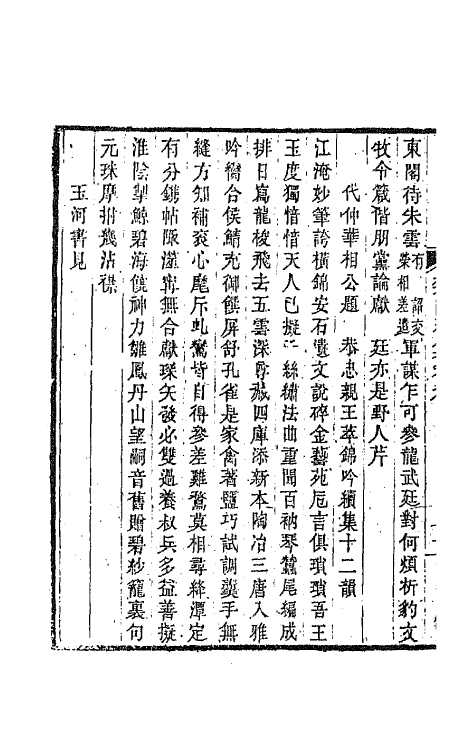 東閣待朱雲有詔交榮相差遣軍謀乍可參龍武廷對何煩析豹文
牧令箴偕朋黨論獻廷亦是野人芹
代仲華相公題恭忠親王萃錦吟續集十二韻
江淹妙筆誇橫錦安石遺文說碎金藝苑卮言俱瑣瑣吾王
玉度獨愔愔天人已擬絲繡法曲重聞百衲琴蠆尾編成
排日寫龍梭飛去五雲深尋藏四庫添新本陶冶三唐入雅
吟臠合侯鯖充御饌屏舒孔雀是家禽著鹽巧試調羹手無
縫方知補袞心鳧斥虬驚皆自得參差雖鶩莫相尋絳潭定
有分鐫帖陬澨甯無合獻琛矢發必雙過養叔兵多益善擬
淮陰掣鯨碧海饒神力雛鳳丹山望嗣音舊贈碧紗籠裏句
元珠摩揩幾沾襟
玉河書見